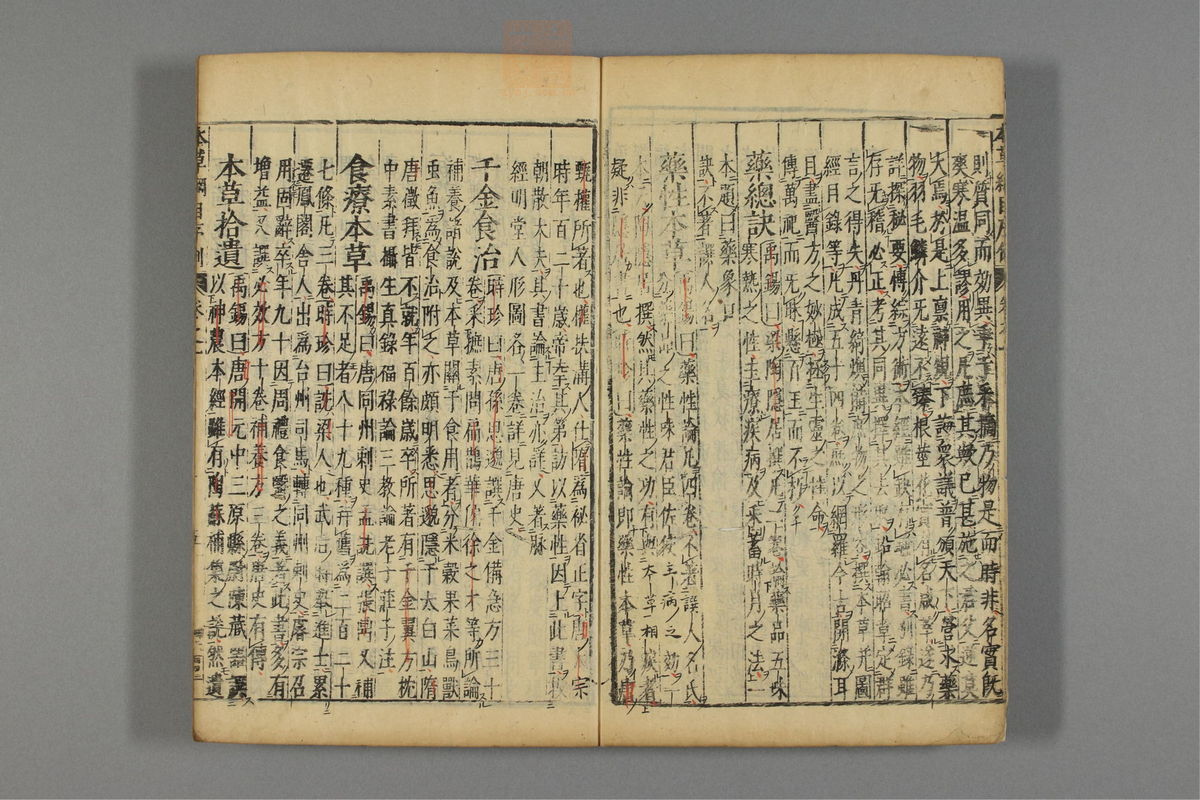 則質同而效異乖采摘乃物是而時非名實既
爽寒溫多謬用之凡庶其欺已甚施之君父逆莫
大焉於是上禀神規下詢衆議普頒天下營求藥
物羽毛鱗介无遠不臻根莖花實有名咸萃遂乃
詳探秘要傳綜方術本經雖闕有驗必書別錄雖
存无稽必正考其同異擇其去取鉛翰昭章定群
言之得失丹青綺煥備庶物之形容撰本草并圖
經目錄等凡成五十四卷庶以網羅今古開滌耳
目盡醫方之妙極拯生靈之性命
傳萬祀而无昧懸百王而不朽
藥總訣 禹錫曰梁陶隱居撰凡二卷論藥品五味
寒熱之性主療疾病及采蓄時月之法一
本題曰藥象口
訣不著撰人名
藥性本草 禹錫曰藥性論凡四卷不著譔人名氏
性味君臣佐使主病之效
疑非 藥性論即藥性本草乃唐
甄權所著也權扶溝人仕隋為秘省正字唐太宗
時年百二十歲帝幸其第訪以藥性因上此書授
朝散大夫其書論主治亦詳又著脉
經明堂人形圖各一卷詳見唐史
千金食治 時珍曰唐孫思邈譔千金備急方三十
卷采摭素問扁鵲華佗徐之才等所論
補養諸說及本草關于食用者分米穀果菜鳥獸
蟲魚為食治附之亦頗明悉思邈隱于太白山隋
唐徵拜皆不就年百餘歲卒所著有千金翼方枕
中素書攝生真錄福祿論三教論老子莊子注
食療本草 禹錫曰唐同州刺史孟詵譔張鼎又補
其不足者八十九種并舊為二百二十
七條凡三卷時珍曰詵梁人也武后時舉進士累
遷鳳閣舍人出為台州司馬轉同州刺史睿宗召
用固辭卒年九十因周禮食醫之義著此書多有
增益又譔必效方十卷補養方三卷唐史有傳
本草拾遺 禹錫曰唐開元中三原縣尉陳藏器譔
以神農本經雖有陶蘇補集之說然遺